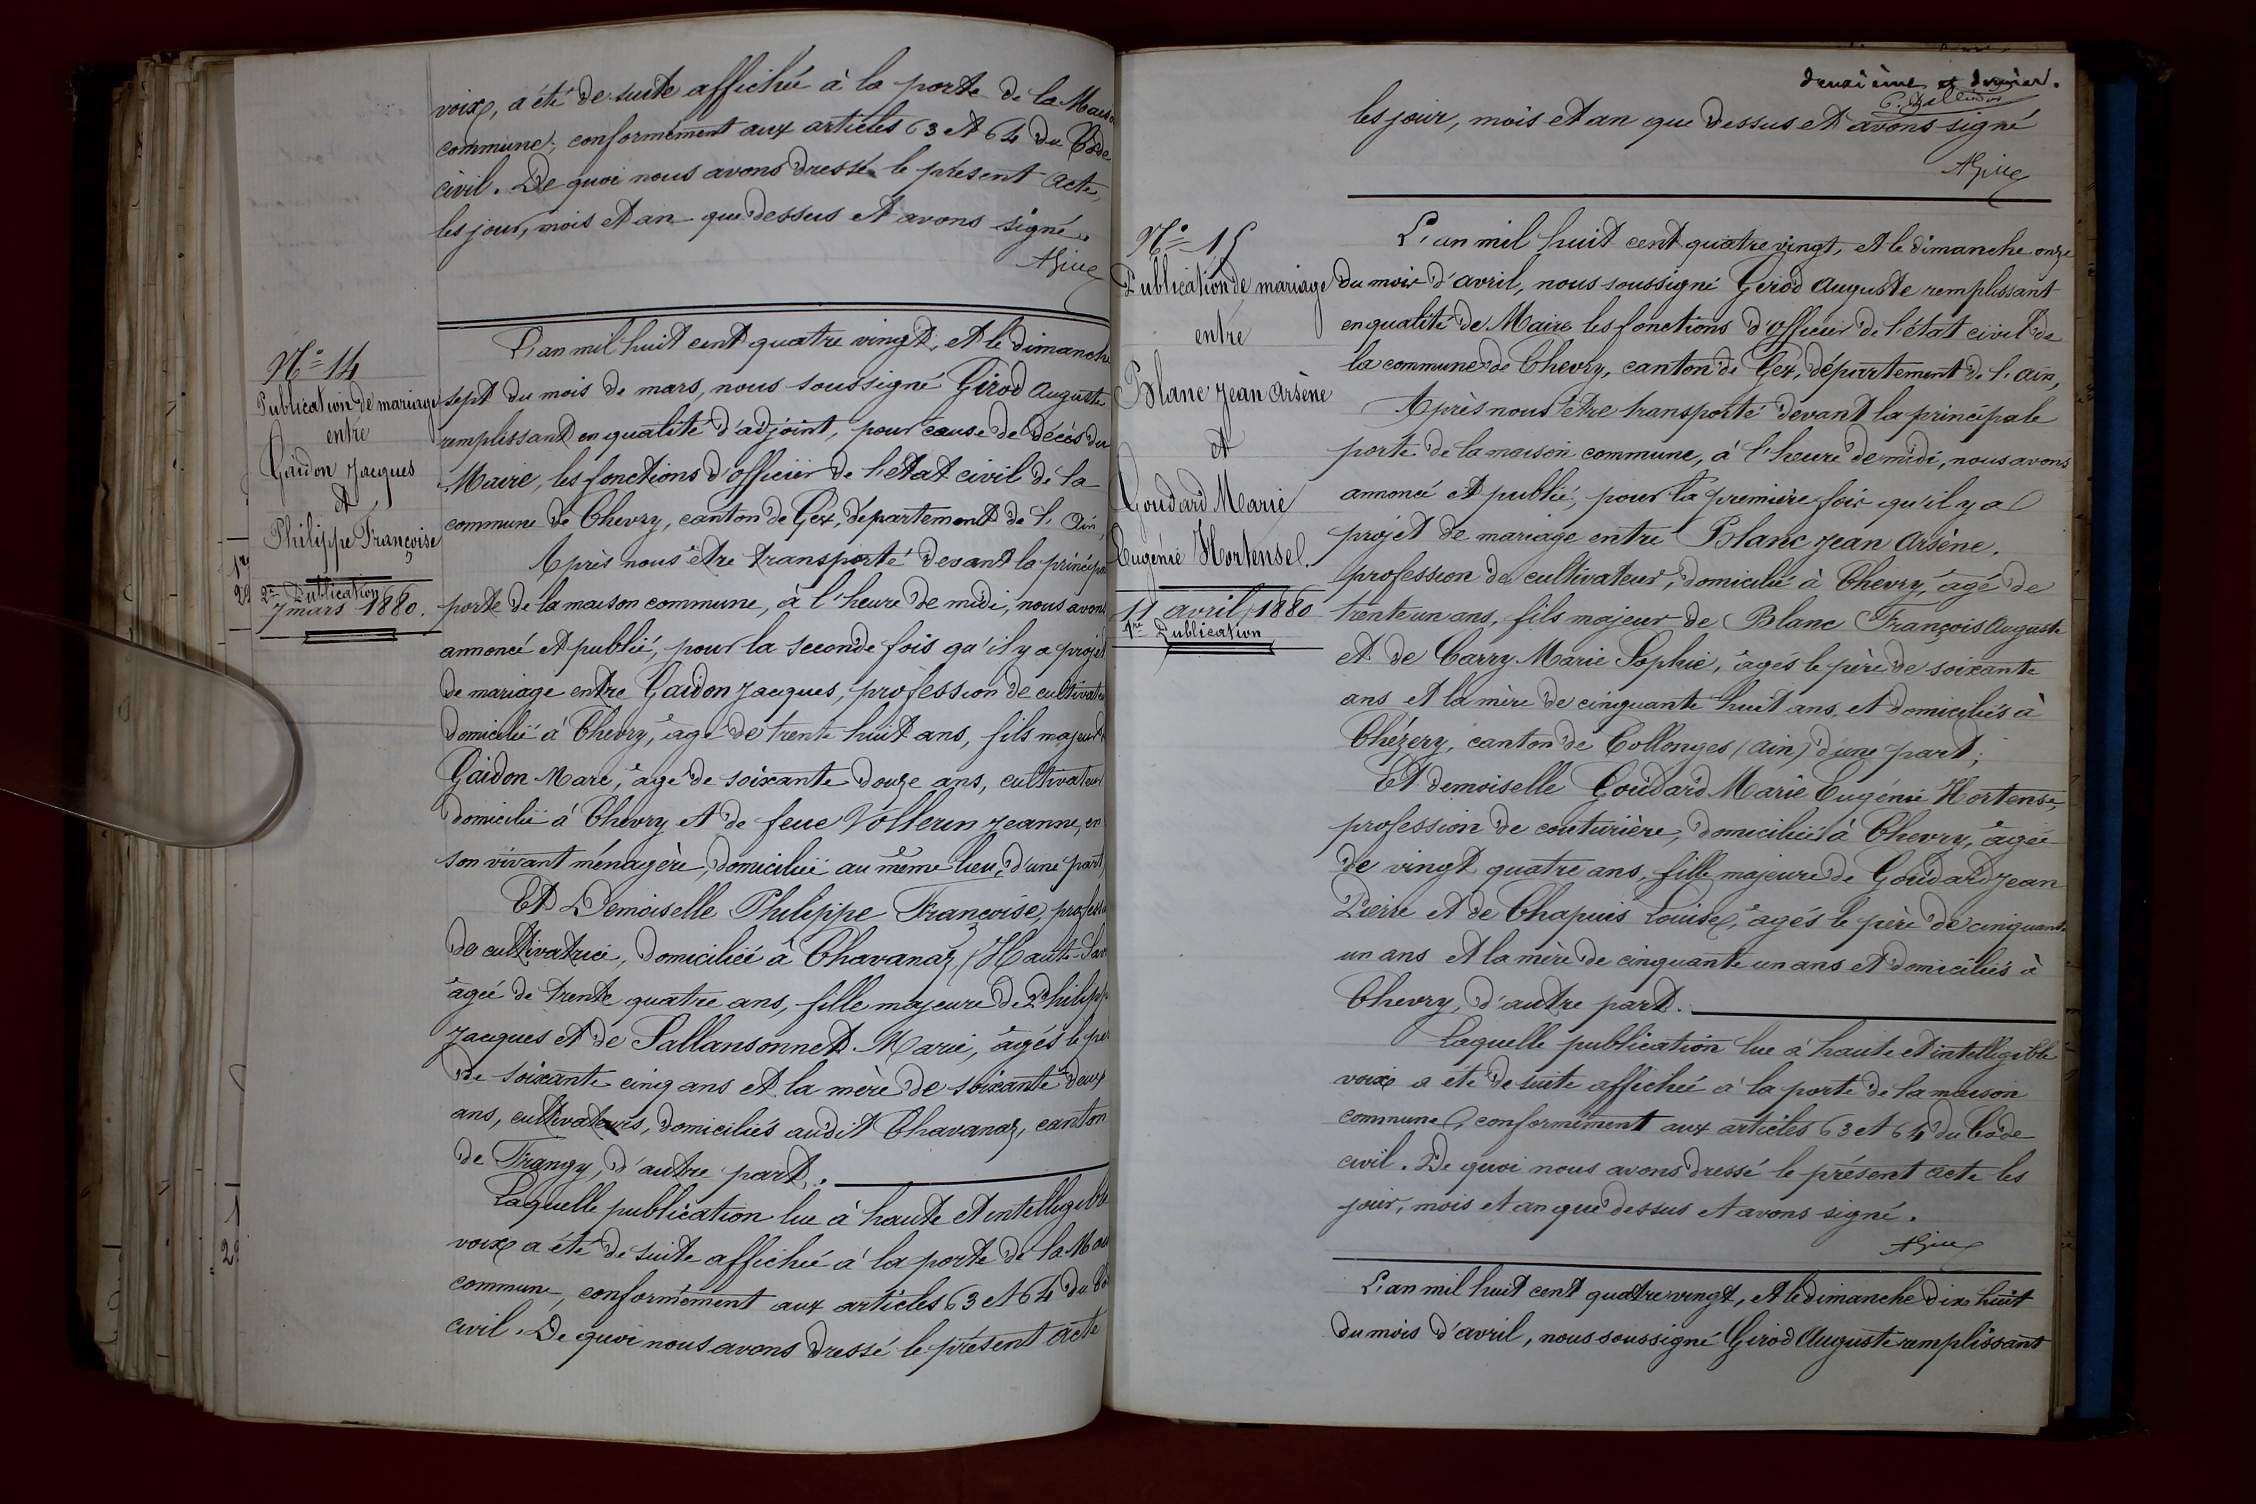 voix, a été de suite affichée à la porte de la Maison
commune, conformément aux articles 63 et 64 du Code
civil. De quoi nous avons dressé le présent acte,
les jour, mois et an que dessus et avons signé.
N° 14
Publication de mariage
entre
Gaidon Jacques
et
Philippe Françoise
2me Publication
7 mars 1880.
L'an mil huit cent quatre vingt, et le dimanche
sept du mois de mars, nous soussigné Girod Auguste
remplissant en qualité d'adjoint, pour cause de décès du
Maire, les fonctions d'officier de l'état civil de la
commune de Chevry, canton de Gex, département de l'Ain,
Après nous être transporté devant la princip
porte de la maison commune, à l'heure de midi, nous avons
annoncé et publié, pour la seconde fois qu'il y a projet
de mariage entre Gaidon Jacques, profession de cultivateur
domicilié à Chevry, âgé de trente huit ans, fils majeur d
Gaidon Marc, âgé de soixante douze ans, cultivateur
domicilié à Chevry et de feue Vollerin Jeanne, en
son vivant ménagère, domiciliée au même lieu, d'une part,
Et Demoiselle Philippe Françoise, profess
de cultivatrice, domiciliée à Chavanaz, (Haute-Sav
âgée de trente quatre ans, fille majeure de Philipp
Jacques et de Sallansonnet Marie, âgés le pè
de soixante cinq ans et la mère de soixante deux
ans, cultivateurs, domiciliés audit Chavanaz, canton
de Frangy, d'autre part.
Laquelle publication lue à haute et intelligible
voix a été de suite affichée à la porte de la Mai
commune, conformément aux articles 63 et 64 du Co
civil. De quoi nous avons dressé le présent acte
deuxième et dernier.
les jour, mois et an que dessus et avons signé
N° 15
Publication de mariage
entre
Blanc Jean Arsène
et
Goudard Marie
Eugénie Hortense.
11 avril 1880
1re Publication
L'an mil huit cent quatre vingt, et le dimanche onze
du mois d'avril, nous soussigné Girod Auguste remplissant
en qualité de Maire les fonctions d'officier de l'état civil de
la commune de Chevry, canton de Gex, département de l'Ain,
Après nous être transporté devant la principale
porte de la maison commune, à l'heure de midi, nous avons
annoncé et publié, pour la première fois qu'il y a
projet de mariage entre Blanc Jean Arsène.
profession de cultivateur, domicilié à Chevry, âgé de
trente un ans, fils majeur de Blanc François Auguste
et de Carry Marie Sophie, âgés le père de soixante
ans et la mère de cinquante huit ans, et domiciliés à
Chézery, canton de Collonges (Ain) d'une part;
Et demoiselle Goudard Marie Eugénie Hortense,
profession de couturière, domiciliée à Chevry, âgée
de vingt quatre ans, fille majeure de Goudard Jean
Pierre et de Chapuis Louise, âgés le père de cinquante
un ans et la mère de cinquante un ans et domiciliés à
Chevry, d'autre part.
Laquelle publication lue à haute et intelligible
voix a été de suite affichée à la porte de la maison
commune, conformément aux articles 63 et 64 du Code
civil. De quoi nous avons dressé le présent acte les
jour, mois et an que dessus et avons signé.
L'an mil huit cent quatre vingt, et le dimanche dix huit
du mois d'avril, nous soussigné Girod Auguste remplissant